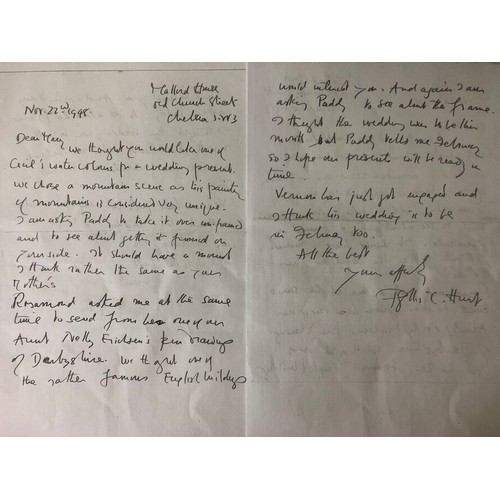 Mallord House
Old Church Street
Chelsea S.W.3
Nov. 22nd 1948.
Dear Mary
We thought you would like one of
Cecil's water colours for a wedding present.
We chose a mountain scene as his painting
of mountains is considered very unique.
I am asking Paddy to take it over un-framed
and to see about getting it framed on
your side. It should have a mount
I think rather the same as your
Mother's
Rosamond asked me at the same
time to send from her one of our
Aunt Nelly Erichsen's pen drawings
of Derbyshire. We thought one of
the rather famous English buildings
would interest you. And again I am
asking Paddy to see about the frame.
I thought the wedding was to be this
month but Paddy tells me February
so I hope our presents will be ready in
time.
Vernon has just got engaged and
I think his wedding is to be
in February too.
All the best
Yours affectly
Phyllis C. Hunt